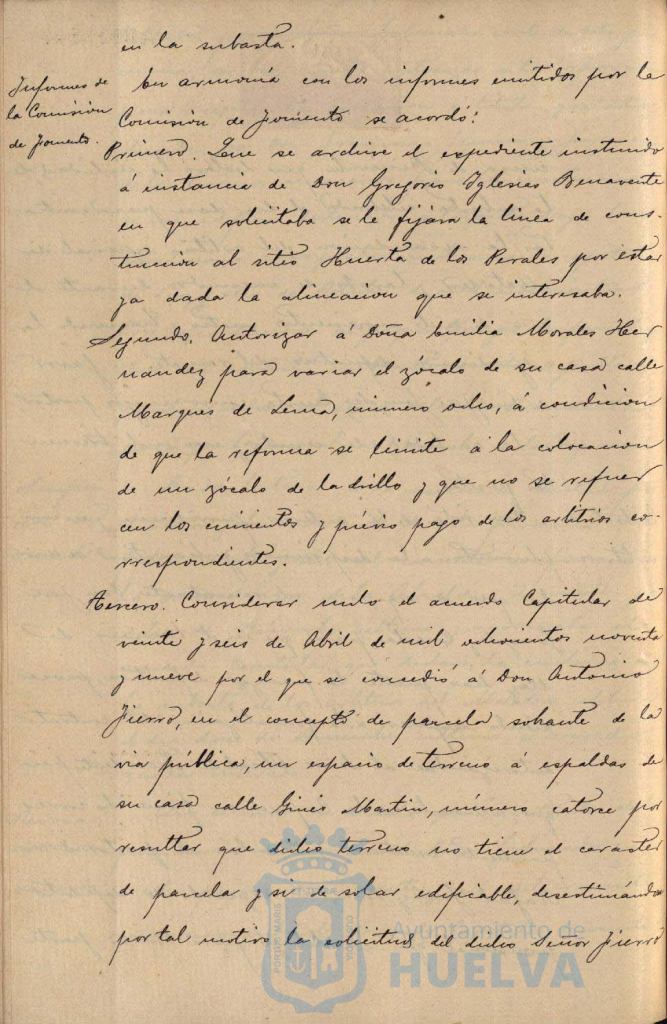 en la subasta.
Informes de
la Comisión
de Fomento.
En armonía con los informes emitidos por la
Comisión de Fomento se acordó:
Primero. Que se archive el expediente instruido
á instancia de Don Gregorio Iglesias Benavente
en que solicitaba se le fijara la linea de cons-
trucción al sitio Huerta de los Perales por estar
ya dada la alineacion que se interesaba.
Segundo. Autorizar á Doña Emilia Morales Her
nandez para variar el zócalo de su casa calle
Marques de Lema, número ocho, á condicion
de que la reforma se limite á la colocacion
de un zócalo de ladrillo y que no se refuer
cen los cimientos y prévio pago de los arbitrios co-
rrespondientes.
Tercero. Considerar nulo el acuerdo Capitular de
veinte y seis de Abril de mil ochocientos noventa
y nueve por el que se concedió á Don Antonio
Fierro, en el concepto de parcela sobrante de la
via pública, un espacio de terreno á espaldas de
su casa calle Ginés Martin, número catorce por
resultar que dicho terreno no tiene el caracter
de parcela y si de solar edificable, desestimándose
por tal motivo la solicitud del dicho Señor Fierro
Ayuntamiento de
HUELVA